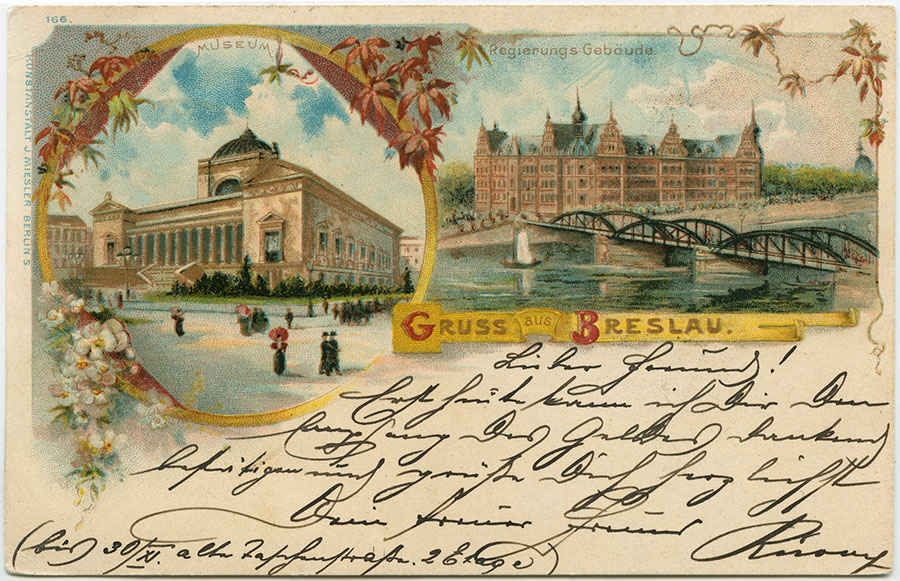 166.
KUNSTANSTALT J. MIESLER, BERLIN S.
MUSEUM.
Regierungs-Gebäude.
GRUSS aus BRESLAU.
Lieber Freund!
Erst heute kann ich Dir den
Empfang des Geldes dankend
bestätigen und grüße Dich herzlichst
Dein treuer Freund
(bis 30/XI. alte Taschenstraße. 2 Etage)